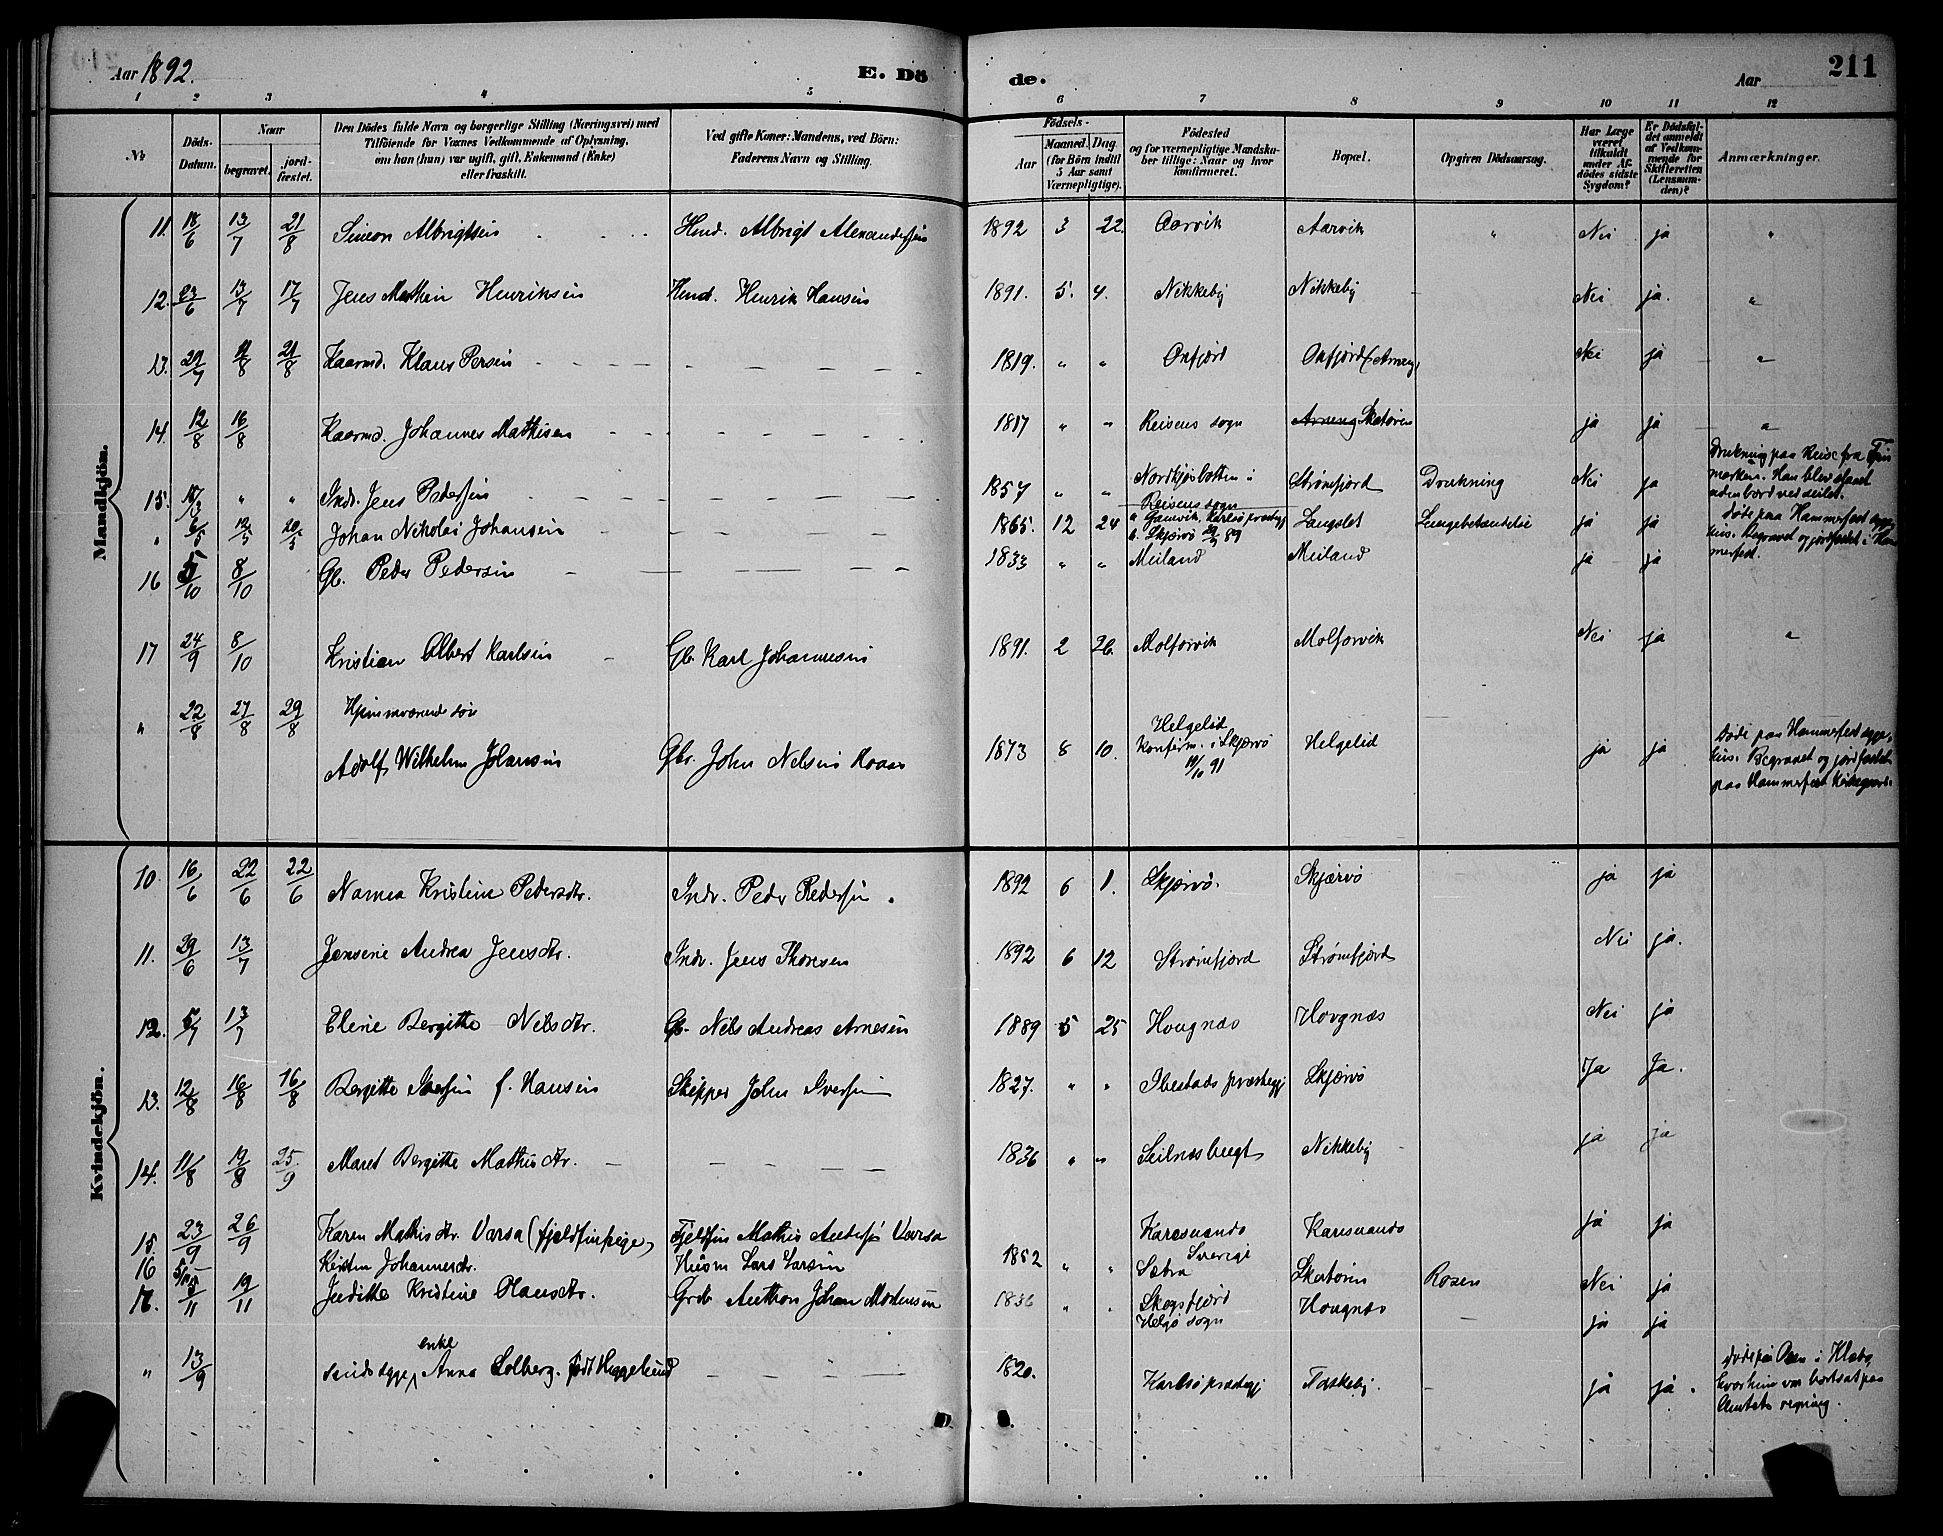 Aar 1892. E. Dö de. Aar 211
1 2 3 4 5 6 7 8 9 10 11 12
No
Döds-Datum.
Naar
begravet.
jord-fæstet.
Den Dödes fulde Navn og borgerlige Stilling (Næringsvei) med
Tilföiende for Voxnes Vedkommende af Oplysning,
om han (hun) var ugift, gift, Enkemand (Enke)
eller fraskilt.
Ved gifte Koner: Mandens, ved Börn:
Faderens Navn og Stilling.
Födsels-
Aar
Maaned. Dag.
(for Börn indtil
5 Aar samt
Værnepligtige).
Födested
og for værnepligtige Mandska-
ber tillige: Naar og hvor
konfirmeret.
Bopæl.
Opgiven Dödsaarsag.
Har Læge
været
tilkaldt
under Af-
dödes sidste
Sygdom?
Er Dödsfal-
det anmeldt
af Vedkom-
mende for
Skifteretten
(Lensman-
den)?
Anmærkninger.
Mandkjön.
11. 18/6 13/7 21/8 Simon Albrigtsen Hmd. Albrigt Alexandersen 1892 3 22. Aarvik Aarvik " Nei ja "
12. 23/6 13/7 17/7 Jens Mathin Henriksen Hmd. Henrik Hansen 1891. 5. 4. Nikkeby Nikkeby Nei ja. "
13. 29/7 21/8 Kaarmd. Klaus Persen 1819. " " Oxfjord Oxfjord (Arnøy) Nei ja "
14. 12/8 16/8 Kaarmd. Johannes Mathisen 1817 " " Reisens sogn Arnøng Skatøren ja ja "
15. 17/3 " " Indr. Jens Pedersen 1857 " " Nordkjosbotten i Reisens sogn Strømfjord Drukning Nei ja Drukning paa Reise fra Fin
merken. Han blev slaaet
udenbord ved seilet.
" Johan Nikolai Johansen 1865. 12 24 Gamvik, Karlsø præstegj Skjærvø 89 Langslet Lungebetændelse ja ja Døde paa Hammerfest syge
hus. Begravet og jordfæstet i Ham
merfest.
16 5/10 8/10 Gb. Peder Pedersen 1833 " " Meiland Meiland ja ja
17 24/9 8/10 Kristian Albert Karlsen Gb. Karl Johannesen 1891. 2 26. Molforvik Molforvik Nei ja "
" 22/8 27/8 29/8 Hjemmværende søn
Adolf Wilhelm Johansen Gbr. John Nelsen Koaas 1873 8 10. Helgelid
Konfirm. i Skjærvø
91 Helgelid ja ja Døde paa Hammerfest syge
hus. Begravet og jordfæstet
paa Hammerfest Kirkegaard.
Kvindekjön.
10. 16/6 22/6 22/6 Narnea Kristine Pedersdtr. Indr. Peder Pedersen. 1892 6 1. Skjærvø. Skjærvø ja ja
11. 29/6 13/7 Jensine Andrea Jensdtr. Indr. Jens Thoresen 1892 6 12 Strømfjord Strømfjord Nei ja.
12. 5/7 13/7 Elene Bergitte Nelsdtr. Gb. Nels Andreas Arnesen 1889 5 25 Hougnæs Hovgnæs Nei ja
13. 12/8 16/8 16/8 Bergitte Iversen f. Hansen Skipper John Iversen 1827. " " Ibestads præstegj Skjærvø Ja Ja.
14. 11/8 19/8 25/9 Maret Bergitte Mathisdtr. 1836 " " Seilnæsbugt Nikkeby ja ja
15. 23/9 26/9 Karen Mathisdtr. Varsa (fjeldfinpige) Fjeldfin Mathis Andersø Varsa Karesuando
Sverige Karesuando ja ja
16 Kirsten Johannesdtr. Husm Lars Larsen 1852 " " Sæbra Skatøren Rosen Nei ja
17. 5/11 19/11 Juditte Kristine Hansdtr. Grdb Anthon Johan Mortensen 1836 " " Skogsfjord
Helgø sogn Hougnæs ja ja
" 13/9 Sindssyge, enke Anna Solberg. født Heggelund 1820. Karlsø præstegj Taskeby. ja ja. Døde paa Øen i Klæbo
hvor hun var bortsat paa
Amtets regning.